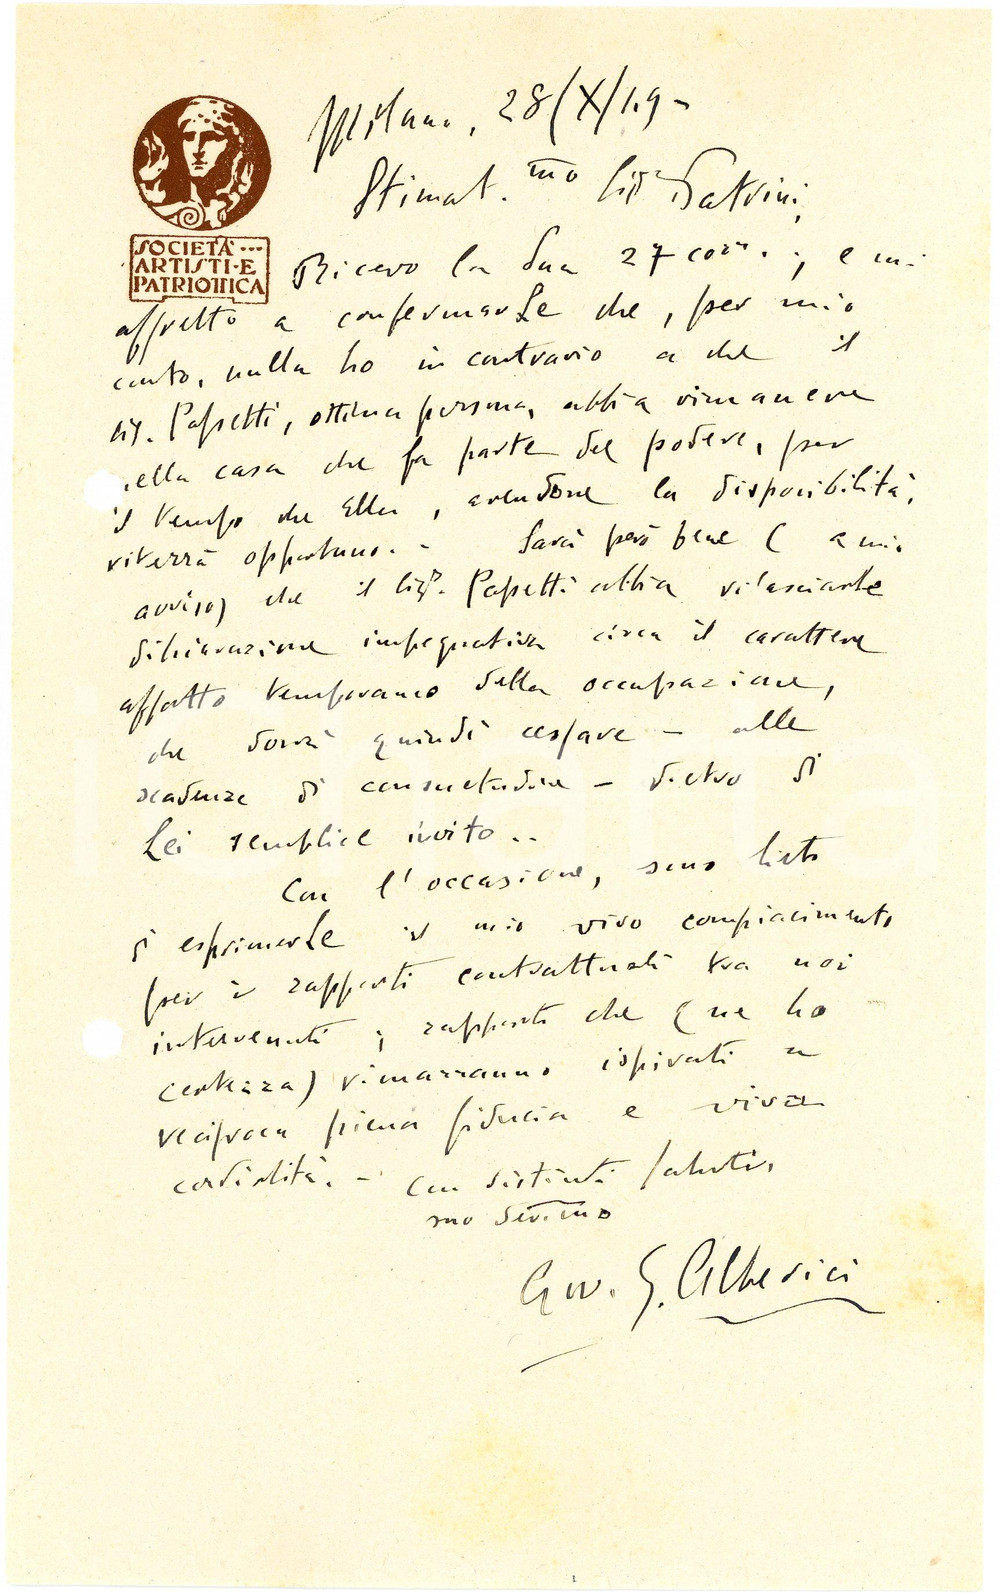 SOCIETÀ
ARTISTI·E
PATRIOTTICA
Milano, 28/X/49 -
Stimat.mo Sigr
Ricevo la Sua 27 corr.; e mi
affretto a confermarLe che, per mio
conto, nulla ho in contrario a che il
sig. Papetti, ottima persona, abbia rimanere
nella casa che fa parte del podere, per
il tempo che Ella, avendone la disponibilità,
riterrà opportuno. - Sarà però bene (a mio
avviso) che il sigr. Papetti abbia rilasciarle
dichiarazione impegnativa circa il carattere
affatto temporaneo della occupazione,
che dovrà quindi cessare - alle
scadenze di consuetudine - dietro di
Lei semplice invito..
Con l'occasione, sono lieto
di esprimerLe il mio vivo compiacimento
per i rapporti contrattuali tra noi
intervenuti; rapporti che (ne ho
certezza) rimarranno ispirati a
reciproca piena fiducia e viva
cordialità. - Con distinti saluti,
suo dev.mo
G. Alberici